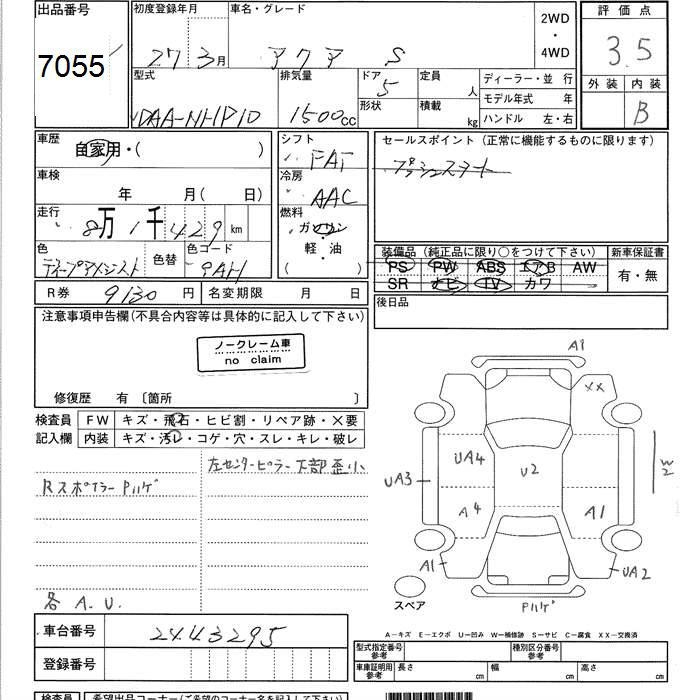 出品番号 初度登録年月 車名・グレード 2WD・4WD 評価点
7055 27 3月 アクア S 3.5
型式 排気量 ドア 5 定員 人 ディーラー・並 行 外装 内装
DAA-NHP10 1500cc 形状 積載 kg モデル年式 年 B
ハンドル 左・右
車歴 自家用・( ) シフト FAT セールスポイント (正常に機能するものに限ります)
プッシュスタート
車検 年 月( 日) 冷房 AAC
走行 8万1千429km 燃料 ガソリン
軽・油
( )
色 ディープアメジスト 色替 色コード 9AH
装備品 (純正品に限り○をつけて下さい) 新車保証書
PS PW ABS エアB AW 有・無
SR ナビ TV カワ
R券 9130円 名変期限 月 日 後日品
注意事項申告欄(不具合内容等は具体的に記入して下さい)
ノークレーム車
no claim
修復歴 有 〔箇所 〕
検査員 FW キズ・飛石・ヒビ割・リペア跡・×要
記入欄 内装 キズ・汚レ・コゲ・穴・スレ・キレ・破レ
左センターピラー下部歪小
Rスポイラー Pハゲ
各 A.U.
A1
XX
UA4
U2
W2
UA3
A4
A1
A1
UA2
スペア
Pハゲ
A―キズ E―エクボ U―凹み W―補修跡 S―サビ C―腐食 XX―交換済
車台番号 2443295
登録番号
型式指定番号 参考 種別区分番号 参考
車庫証明用 参考 長さ cm 幅 cm 高さ cm
検査員 希望出品コーナー(ご希望のコーナー名を記入下さい)